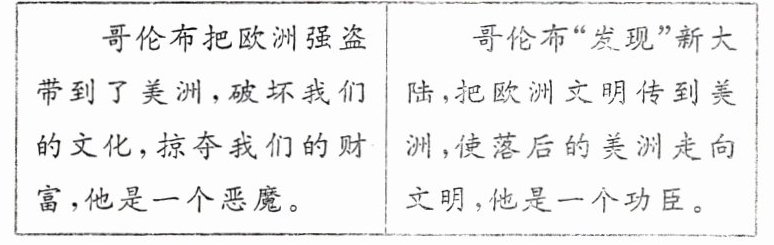 哥伦布把欧洲强盗
带到了美洲,破坏我们
的文化,掠夺我们的财
富,他是一个恶魔。
哥伦布“发现”新大
陆,把欧洲文明传到美
洲,使落后的美洲走向
文明,他是一个功臣。